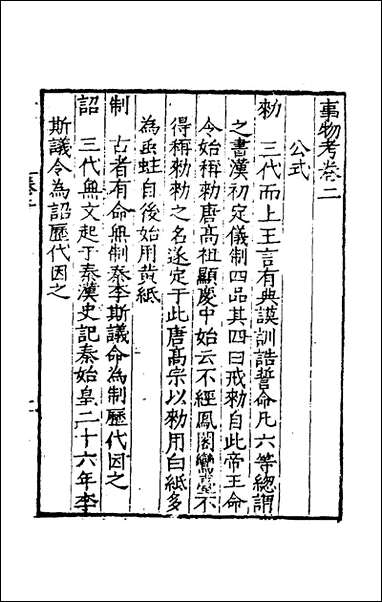 事物考卷二
公式
勑 三代而上王言有典謨訓誥誓命凡六等總謂
之書漢初定儀制四品其四曰戒勑自此帝王命
令始稱勑唐高祖顯慶中始云不經鳳閣鸞臺不
得稱勑勑之名遂定于此唐髙宗以勑用白紙多
為蟲蛀自後始用黄紙
制 古者有命無制秦李斯議命為制歷代因之
詔 三代無文起于秦漢史記秦始皇二十六年李
斯議令為詔歷代因之